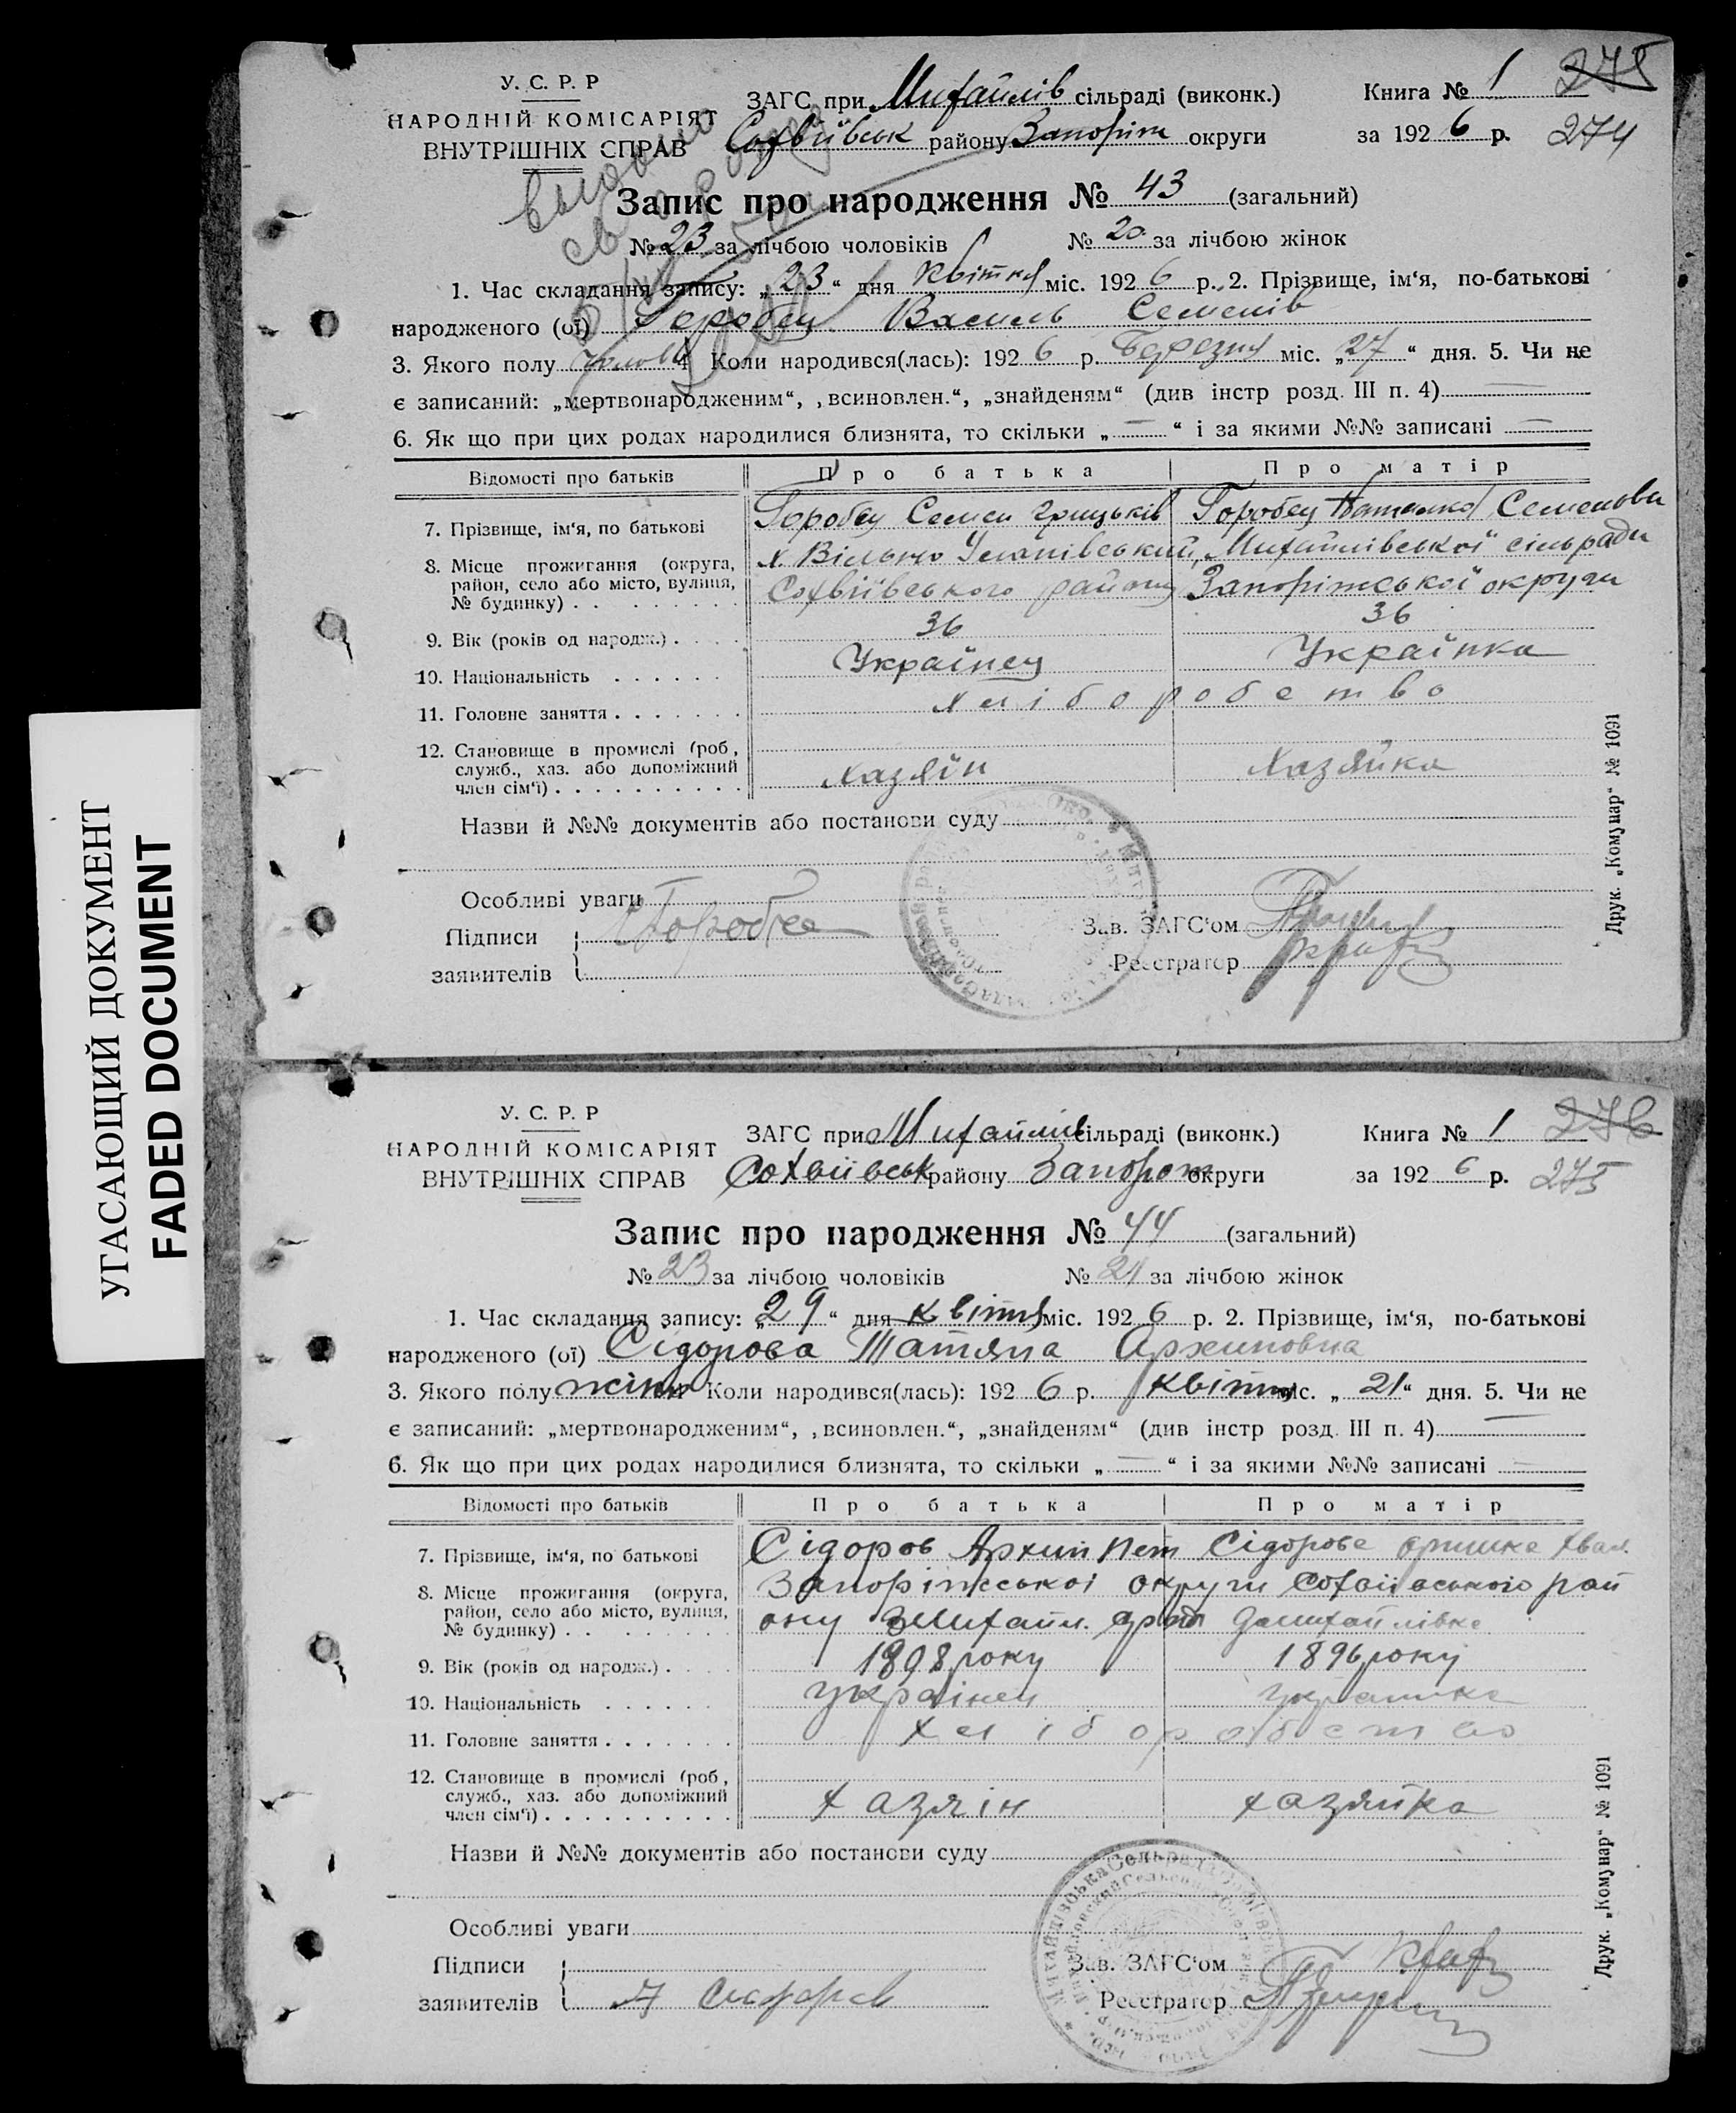 УГАСАЮЩИЙ ДОКУМЕНТ
FADED DOCUMENT
У. С. Р. Р
НАРОДНІЙ КОМІСАРІЯТ
ВНУТРІШНІХ СПРАВ
ЗАГС при Михайлів сільраді (виконк.)
Софіївськ району Запоріж округи
Книга № 1 275
за 1926 р. 274
Запис про народження № 43 (загальний)
№ 23 за лічбою чоловіків № 20 за лічбою жінок
1. Час складання запису: „23“ дня Квітня міс. 1926 р. 2. Прізвище, ім‘я, по-батькові
народженого (ої) Горобец Василь Семенів
3. Якого полу 4 Коли народився(лась): 1926 р. Березня міс. „27“ дня. 5. Чи не
є записаний: „мертвонародженим“, „всиновлен.“, „знайденям“ (див інстр розд. III п. 4)
6. Як що при цих родах народилися близнята, то скільки „—“ і за якими №№ записані —
Відомості про батьків Про батька Про матір
7. Прізвище, ім‘я, по батькові Горобец Семен Грицьків Горобец Наталка Семенова
8. Місце прожигання (округа, район, село або місто, вулиця, № будинку) х. Вільно Уланівський, Михайлівської сільради
Софіївського району Запоріжської округи
9. Вік (років од народж.) 36 36
10. Національність Українец Українка
11. Головне заняття хліборобство
12. Становище в промислі (роб, служб., хаз. або допоміжний член сім‘ї) Хазяїн Хазяйка
Назви й №№ документів або постанови суду
Особливі уваги
Підписи заявителів Горобец
Зав. ЗАГС‘ом
Реєстратор
Друк. „Комунар“ № 1091
У. С. Р. Р
НАРОДНІЙ КОМІСАРІЯТ
ВНУТРІШНІХ СПРАВ
ЗАГС при Михайлів сільраді (виконк.)
Софіївськ району Запоріж округи
Книга № 1 276
за 1926 р. 275
Запис про народження № 44 (загальний)
№ 23 за лічбою чоловіків № 21 за лічбою жінок
1. Час складання запису: „29“ дня квітня міс. 1926 р. 2. Прізвище, ім‘я, по-батькові
народженого (ої) Сідорова Татяна Архиповна
3. Якого полу жіноч Коли народився(лась): 1926 р. квітня міс. „21“ дня. 5. Чи не
є записаний: „мертвонародженим“, „всиновлен.“, „знайденям“ (див інстр розд. III п. 4)
6. Як що при цих родах народилися близнята, то скільки „—“ і за якими №№ записані —
Відомості про батьків Про батька Про матір
7. Прізвище, ім‘я, по батькові Сідоров Архип Пет Сідорова Оришка
8. Місце прожигання (округа, район, село або місто, вулиця, № будинку) Запоріжської округи Софіївського рай
ону
9. Вік (років од народж.) 1898 року 1896 року
10. Національність українец українка
11. Головне заняття хліборобство
12. Становище в промислі (роб, служб., хаз. або допоміжний член сім‘ї) хазяін хазяйка
Назви й №№ документів або постанови суду
Особливі уваги
Підписи заявителів
Зав. ЗАГС‘ом
Реєстратор
Друк. „Комунар“ № 1091